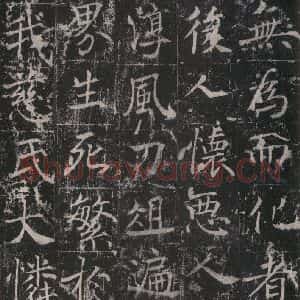 無為而化者
復人懷惡人
淳風刃俎遍
界生死繁於
我慈氏大憐
Shufawang.CN